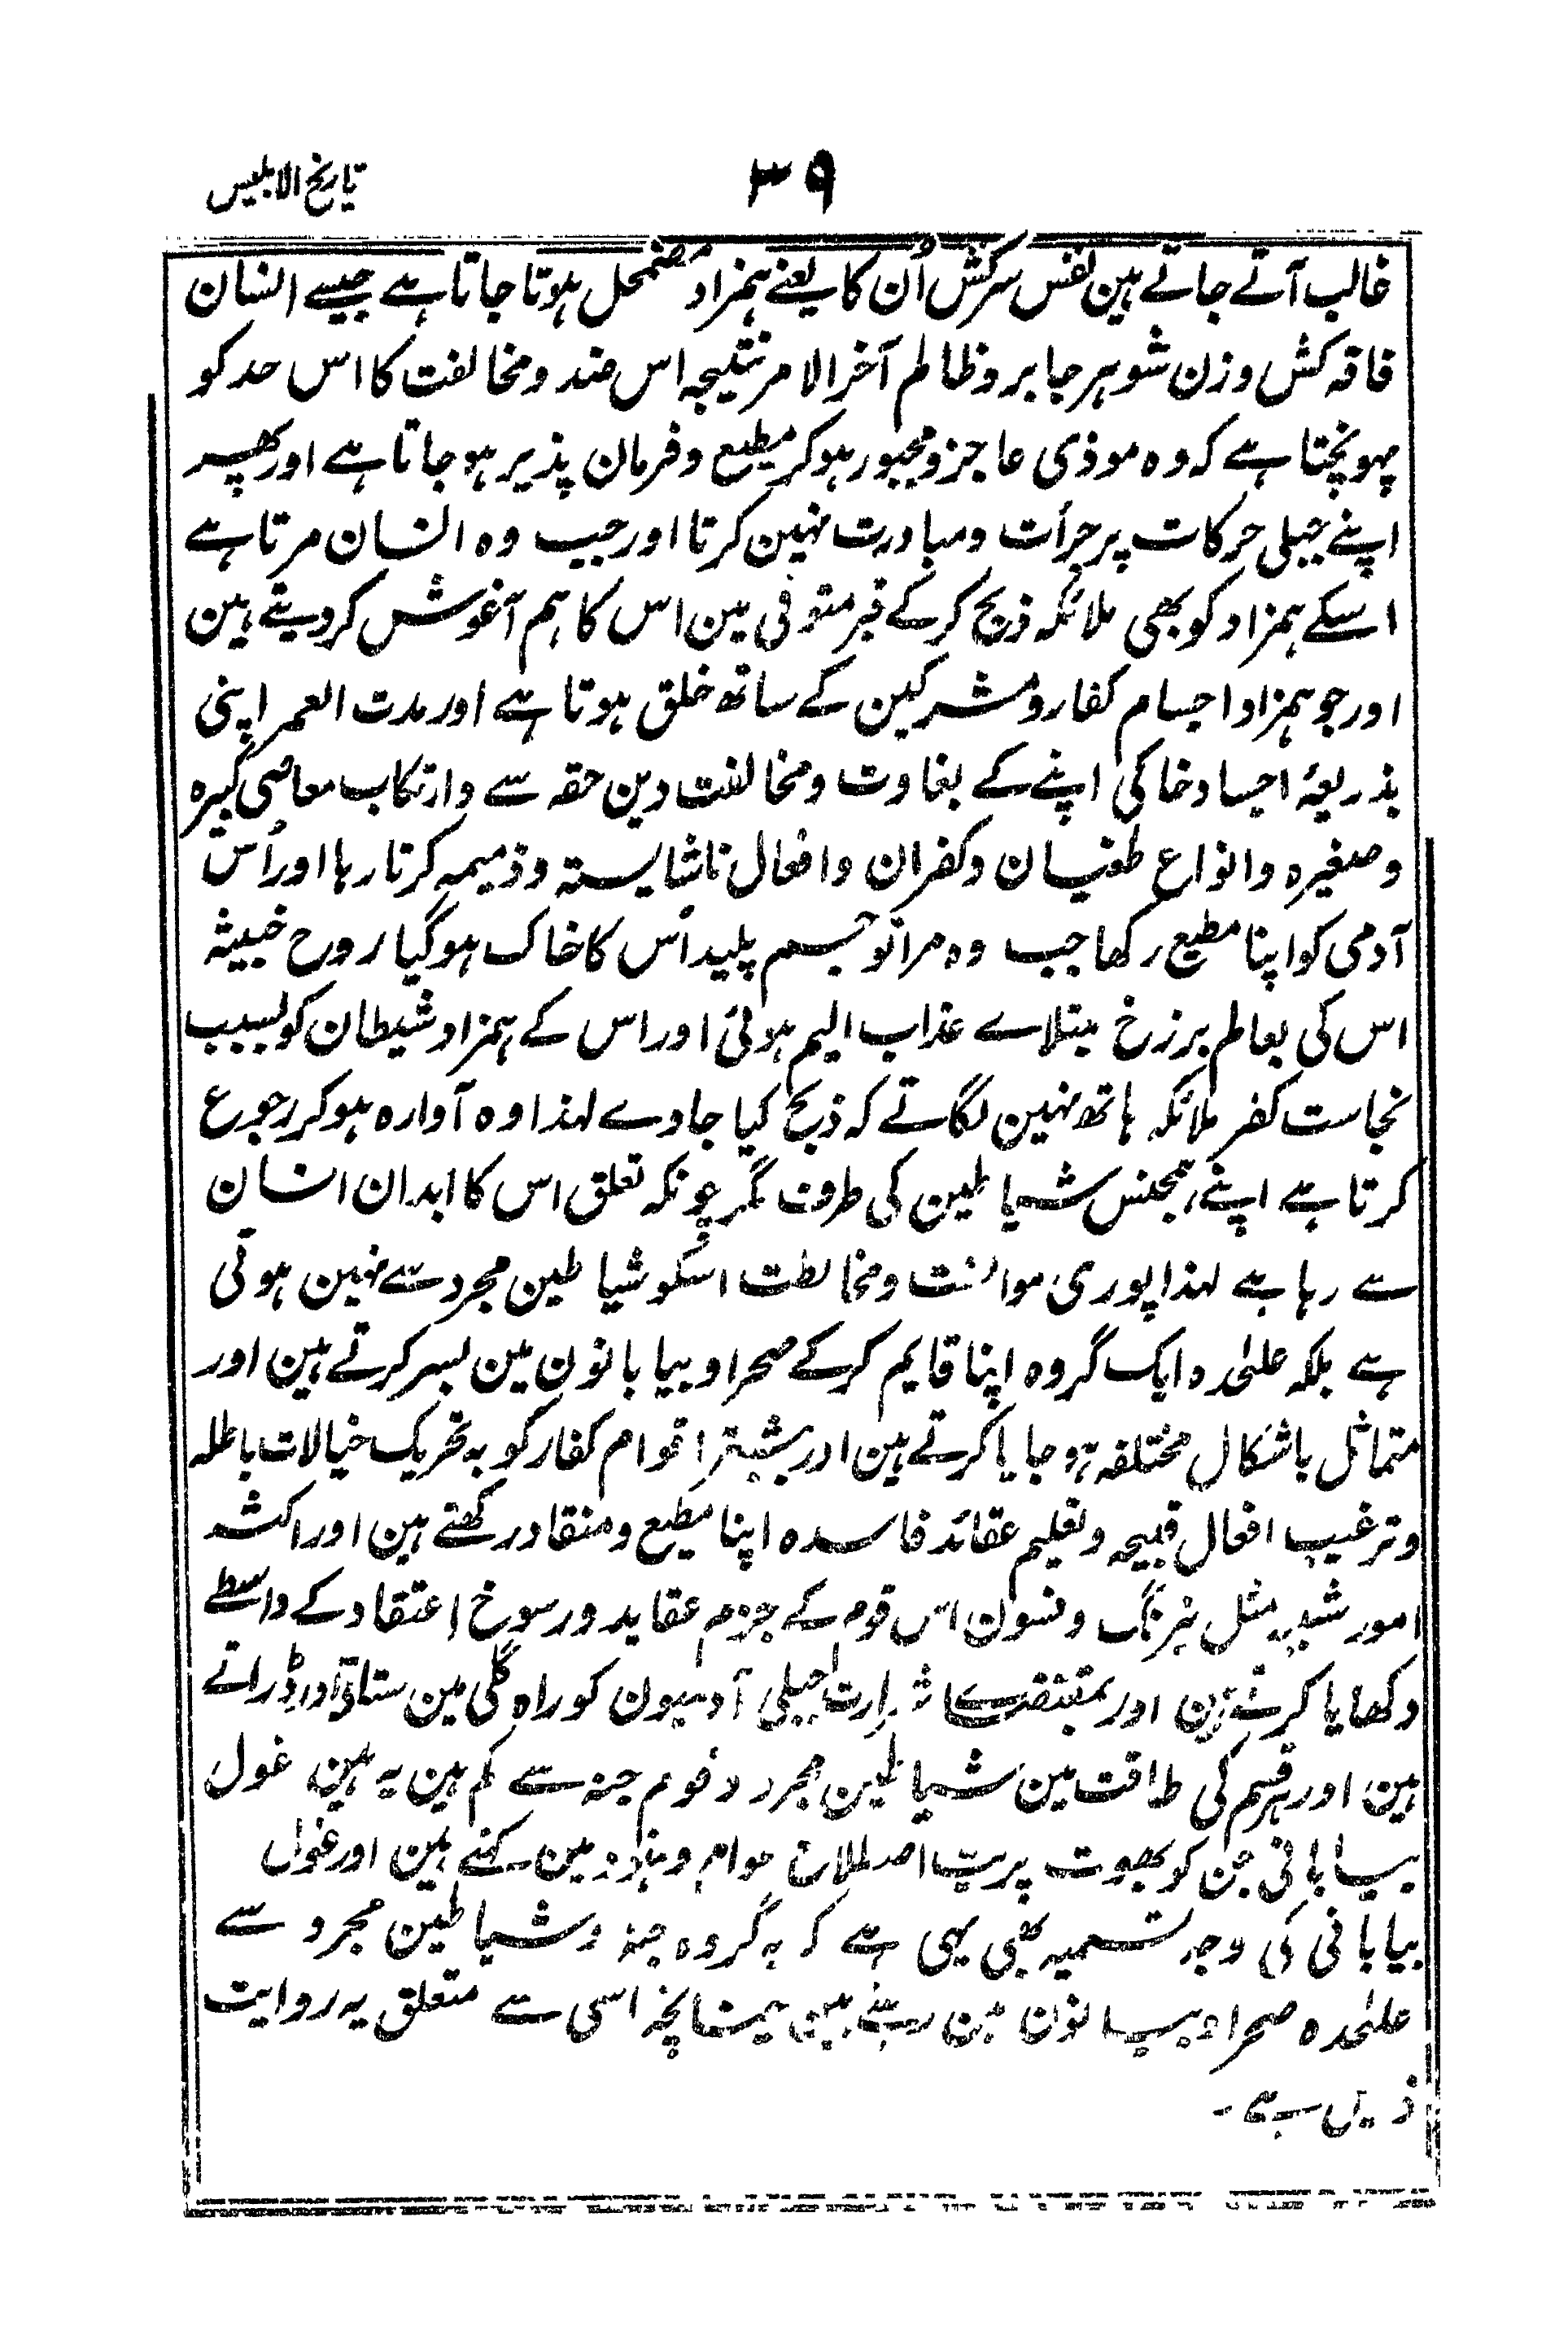 ۳۹
تاریخ الابلیس
غالب آتے جاتے ہین نفس سرکش اُن کا یعنے ہمزاد مضمحل ہوتا جاتا ہے جیسے انسان
فاقہ کش و زن شوہر جابر و ظالم آخر الامر نتیجہ اس ضد و مخالفت کا اس حد کو
پہونچتا ہے کہ وہ موذی عاجز و مجبور ہو کر مطیع و فرمان پذیر ہو جاتا ہے اور پھر
اپنے جبلی حرکات پر جرأت و مبادرت نہین کرتا اور جب وہ انسان مرتا ہے
اسکے ہمزاد کو بھی ملائکہ ذبح کر کے قبر متوفی مین اس کا ہم آغوش کر دیتے ہین
اور جو ہمزاد اجسام کفار و مشرکین کے ساتھ خلق ہوتا ہے اور مدت العمر اپنی
بذریعۂ اجساد خاکی اپنے کے بغاوت و مخالفت دین حقہ سے و ارتکاب معاصی کبیرہ
و صغیرہ و انواع طغیان و کفران و افعال ناشایستہ و ذمیمہ کرتا رہا اور اُس
آدمی کو اپنا مطیع رکھا جب وہ مرا تو جسم پلید اُس کا خاک ہو گیا روح خبیثہ
اس کی بعالم برزخ مبتلاے عذاب الیم ہوئی اور اس کے ہمزاد شیطان کو بسبب
نجاست کفر ملائکہ ہاتھ نہین لگاتے کہ ذبح کیا جاوے لہذا وہ آوارہ ہو کر رجوع
کرتا ہے اپنے ہمجنس شیاطین کی طرف مگر چونکہ تعلق اس کا ابدان انسان
سے رہا ہے لہذا پوری موانست و مخالطت اسکو شیاطین مجرد سے نہین ہوتی
ہے بلکہ علیٰحدہ ایک گروہ اپنا قایم کر کے صحرا و بیابانون مین بسر کرتے ہین اور
متماثل باشکال مختلفہ ہو جایا کرتے ہین اور بیشتر اقوام کفار کو بہ تحریک خیالات باطلہ
و ترغیب افعال قبیحہ و تعلیم عقائد فاسدہ اپنا مطیع و منقاد رکھتے ہین اور اکثر
امور شدیدہ مثل نیرنگ و فسون اس قوم کے جزم عقاید و رسوخ اعتقاد کے واسطے
دکھایا کرتے ہین اور بمقتضاے شرارت جبلی آدمیون کو راہ گلی مین ستاتے اور ڈراتے
ہین اور ہر قسم کی طاقت مین شیاطین مجرد و قوم جنہ سے کم ہین یہ ہین غول
بیابانی جن کو بھوت پریت اصطلاح عوام و ہنود مین کہتے ہین اور غول
بیابانی کی وجہ تسمیہ بھی یہی ہے کہ یہ گروہ جنہ و شیاطین مجرد سے
علیٰحدہ صحرا و بیابانون مین رہتے ہین چنانچہ اسی سے متعلق یہ روایت
ذیل ہے۔